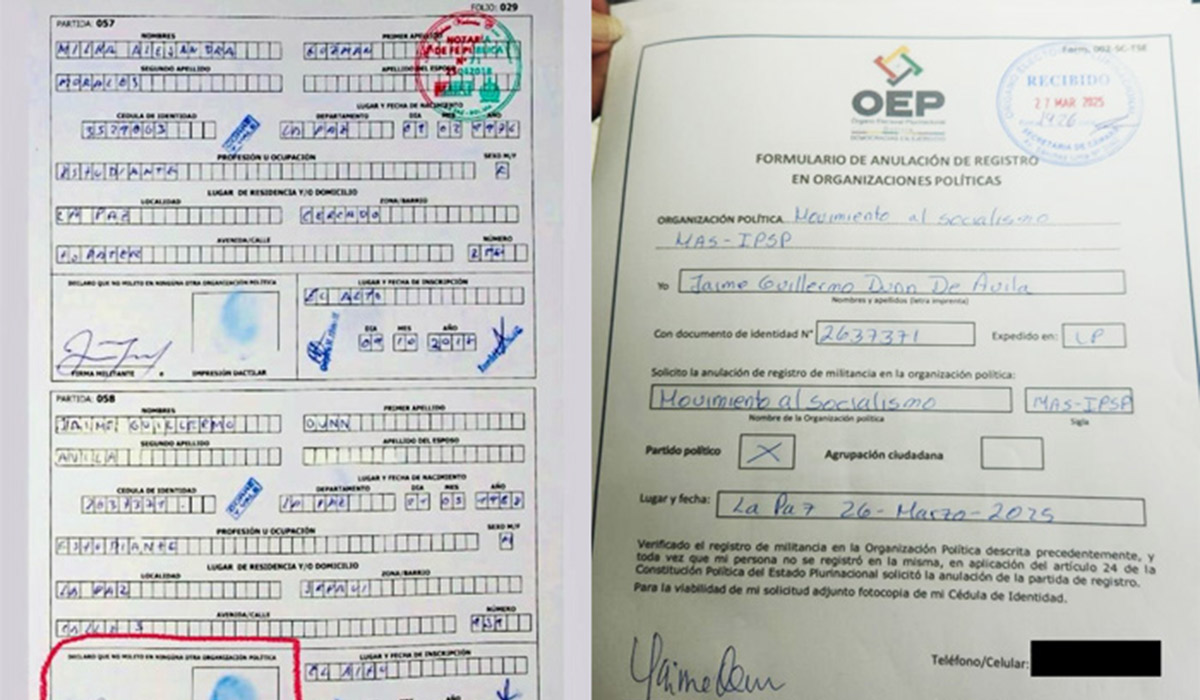 FOLIO: 029
PARTIDA: 057
NOMBRES
PRIMER APELLIDO
MILMA ALEJANDRA
GUZMAN
NOTARIA
DE FE PUBLICA
SEGUNDO APELLIDO
APELLIDO DEL ESPOSO
MORALES
LUGAR Y FECHA DE NACIMIENTO
CEDULA DE IDENTIDAD
DEPARTAMENTO
DIA
MES
AÑO
LA PAZ
PROFESIÓN U OCUPACIÓN
SEXO M/F
ESTUDIANTE
F
LUGAR DE RESIDENCIA Y/O DOMICILIO
LOCALIDAD
ZONA/BARRIO
LA PAZ
CERCADO
AVENIDA/CALLE
NÚMERO
DECLARO QUE NO MILITO EN NINGUNA OTRA ORGANIZACIÓN POLÍTICA
LUGAR Y FECHA DE INSCRIPCIÓN
EL ALTO
DIA
MES
AÑO
FIRMA MILITANTE
IMPRESIÓN DACTILAR
PARTIDA: 058
NOMBRES
PRIMER APELLIDO
JAIME GUILLERMO
DUNN
SEGUNDO APELLIDO
APELLIDO DEL ESPOSO
AVILA
LUGAR Y FECHA DE NACIMIENTO
CEDULA DE IDENTIDAD
DEPARTAMENTO
DIA
MES
AÑO
2637371
LA PAZ
PROFESIÓN U OCUPACIÓN
SEXO M/F
ESTUDIANTE
M
LUGAR DE RESIDENCIA Y/O DOMICILIO
LOCALIDAD
ZONA/BARRIO
LA PAZ
AVENIDA/CALLE
NÚMERO
DECLARO QUE NO MILITO EN NINGUNA OTRA ORGANIZACIÓN POLÍTICA
LUGAR Y FECHA DE INSCRIPCIÓN
EL ALTO
DIA
MES
AÑO
Form. 002-SC-TSE
RECIBIDO
27 MAR 2025
SECRETARIA DE CAMARA
OEP
Órgano Electoral Plurinacional
FORMULARIO DE ANULACIÓN DE REGISTRO
EN ORGANIZACIONES POLÍTICAS
ORGANIZACIÓN POLÍTICA Movimiento al socialismo
MAS-IPSP
Yo Jaime Guillermo Dunn De Avila
Nombres y apellidos (letra imprenta)
Con documento de identidad N° 2637371 Expedido en: LP
Solicito la anulación de registro de militancia en la organización política:
Movimiento al socialismo MAS-IPSP
Nombre de la Organización política Sigla
Partido político X Agrupación ciudadana
Lugar y fecha: La Paz 26-Marzo-2025
Verificado el registro de militancia en la Organización Política descrita precedentemente, y
toda vez que mi persona no se registró en la misma, en aplicación del artículo 24 de la
Constitución Política del Estado Plurinacional solicitó la anulación de la partida de registro.
Para la viabilidad de mi solicitud adjunto fotocopia de mi Cédula de Identidad.
Teléfono/Celular: